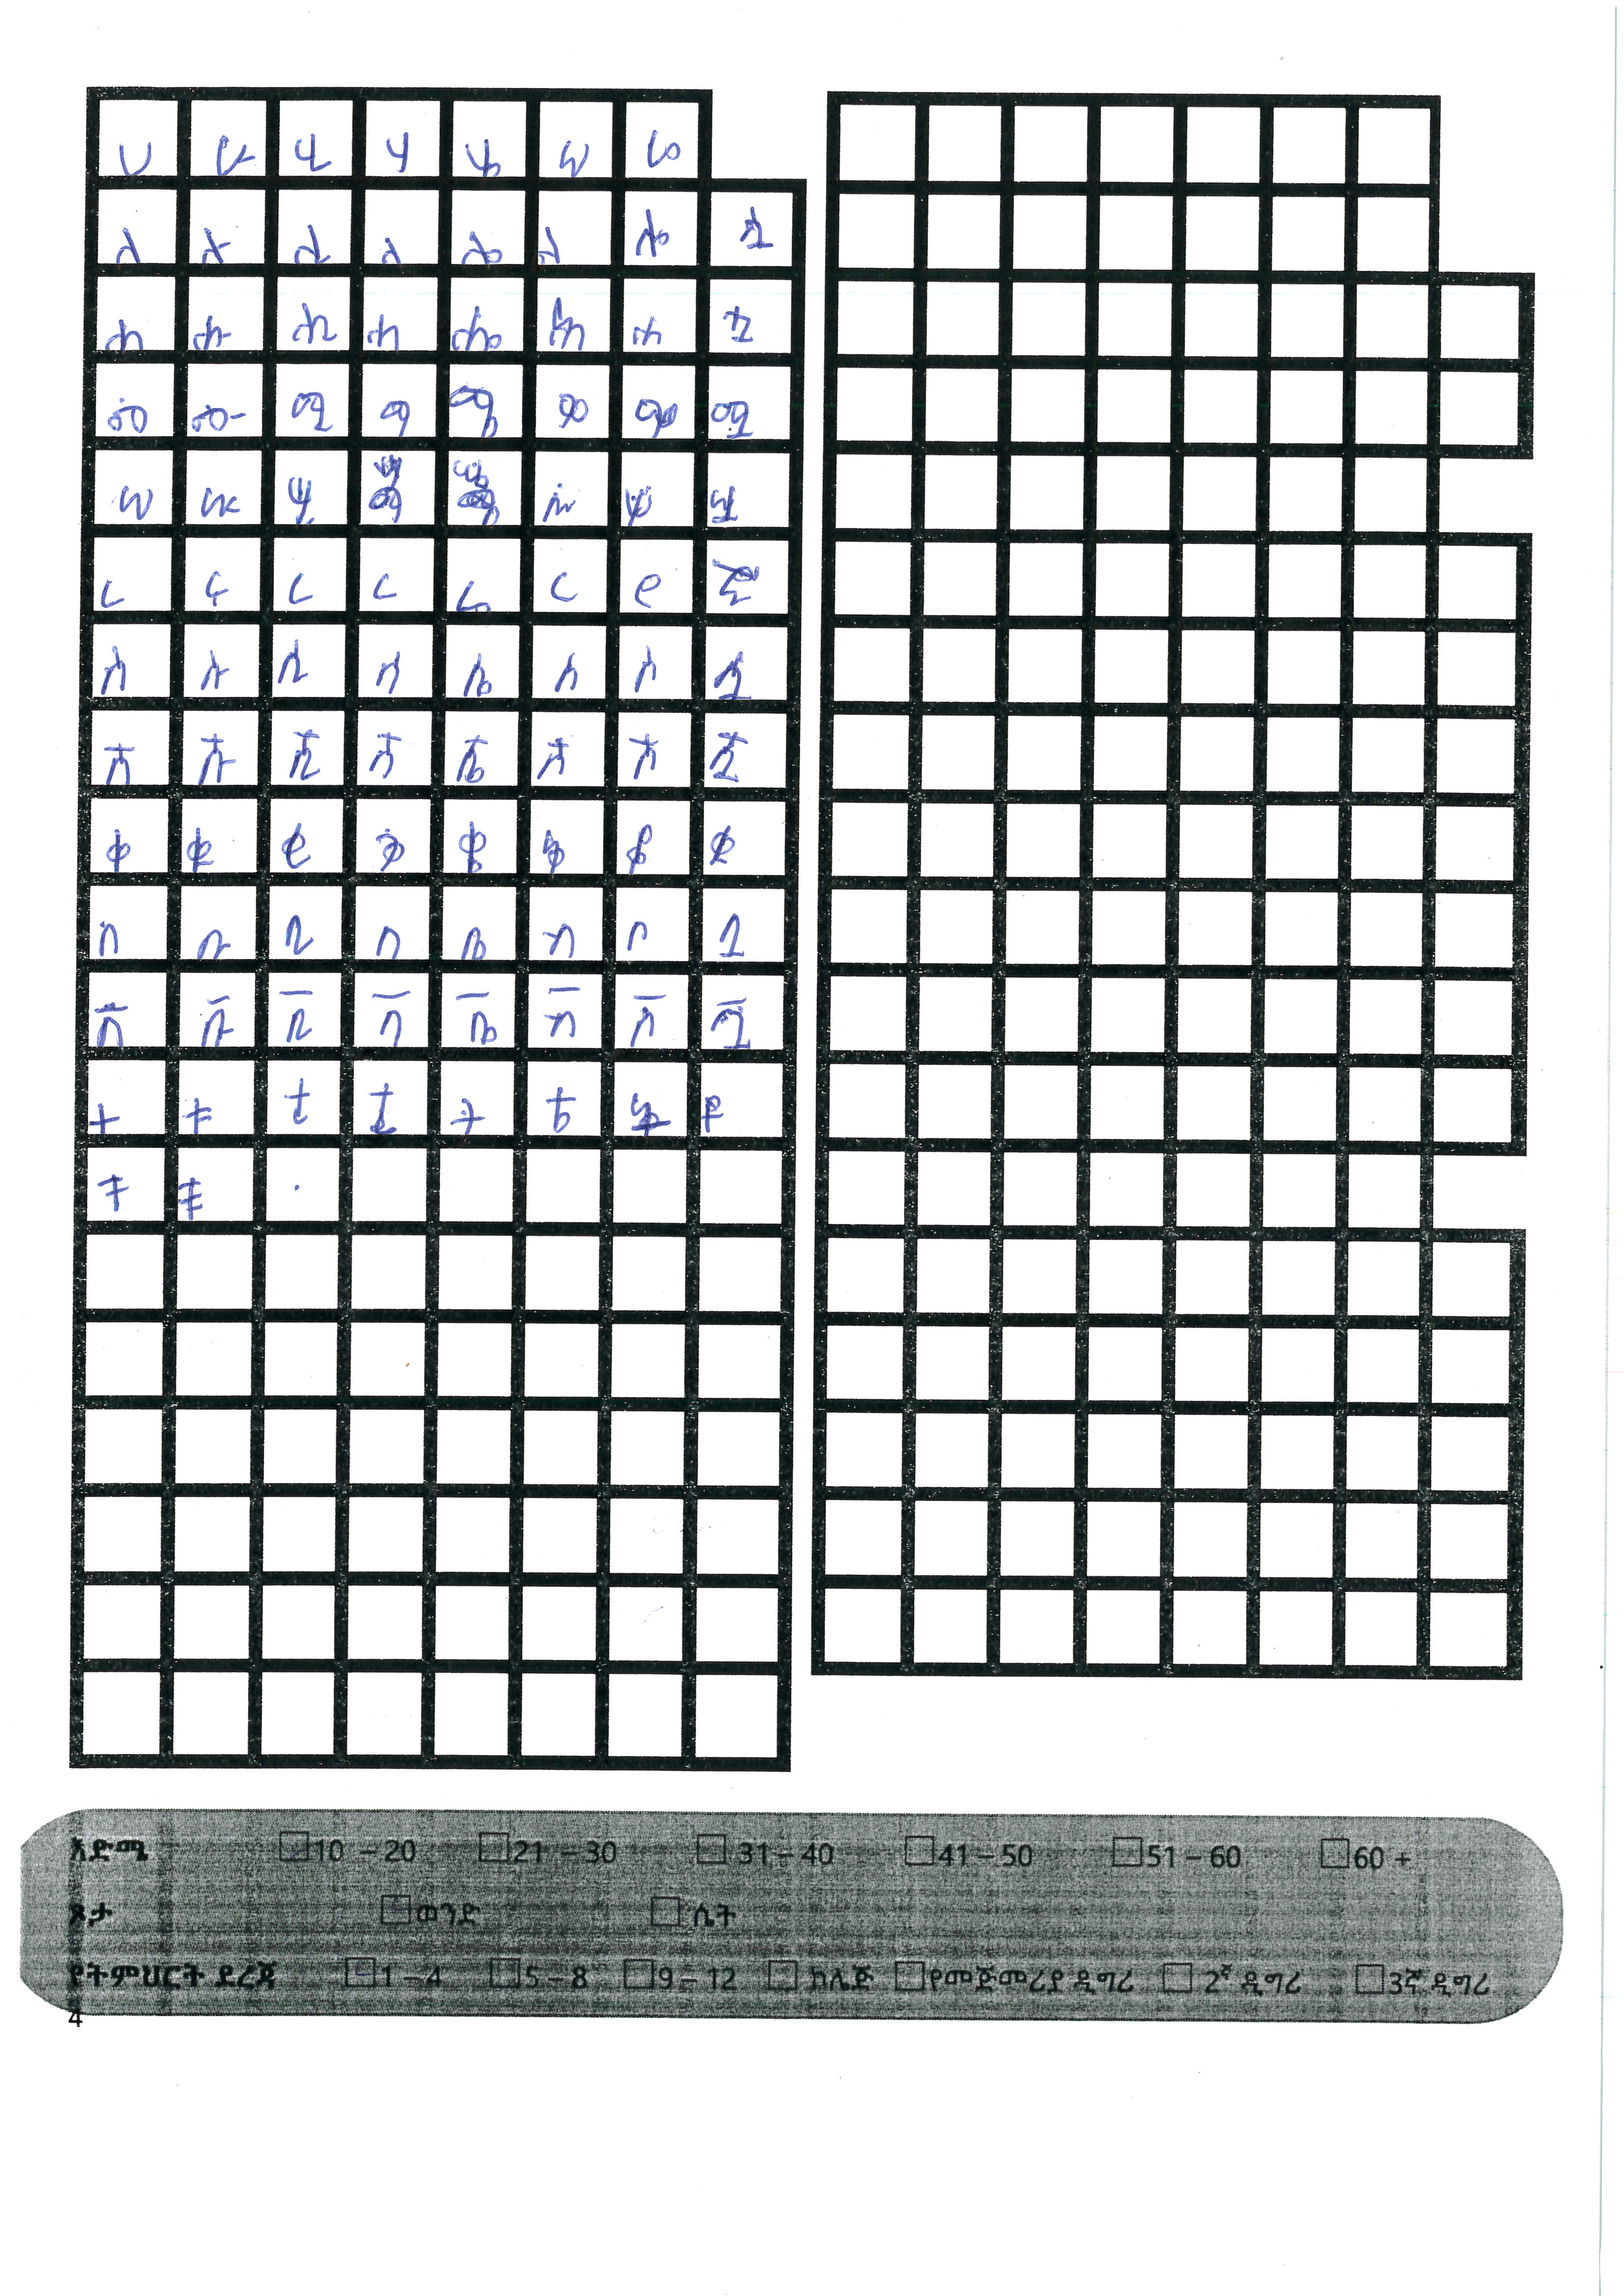 ሀ ሁ ሂ ሃ ሄ ህ ሆ
ለ ሉ ሊ ላ ሌ ል ሎ ሏ
ሐ ሑ ሒ ሓ ሔ ሕ ሗ
መ መ- ሚ ማ ሜ ም ሞ ሟ
ሠ ሡ ሢ ሧ
ረ ሩ ሪ ራ ሬ ር ሮ
ሰ ሱ ሲ ሳ ሴ ስ ሶ ሷ
ሸ ሹ ሺ ሻ ሼ ሽ ሾ ሿ
ቀ ቁ ቂ ቃ ቄ ቅ ቆ
በ ቡ ቢ ባ ቤ ብ ቦ ቧ
ቨ ቩ ቪ ቫ ቬ ቭ ቮ ቯ
ተ ቱ ቲ ታ
ቸ ቹ
እድሜ 10 – 20 21 – 30 31 – 40 41 – 50 51 – 60 60 +
ጾታ ወንድ ሴት
የትምህርት ደረጃ 1 – 4 5 – 8 9 – 12 ኮሌጅ የመጀመሪያ ዲግሪ 2ኛ ዲግሪ 3ኛ ዲግሪ
4